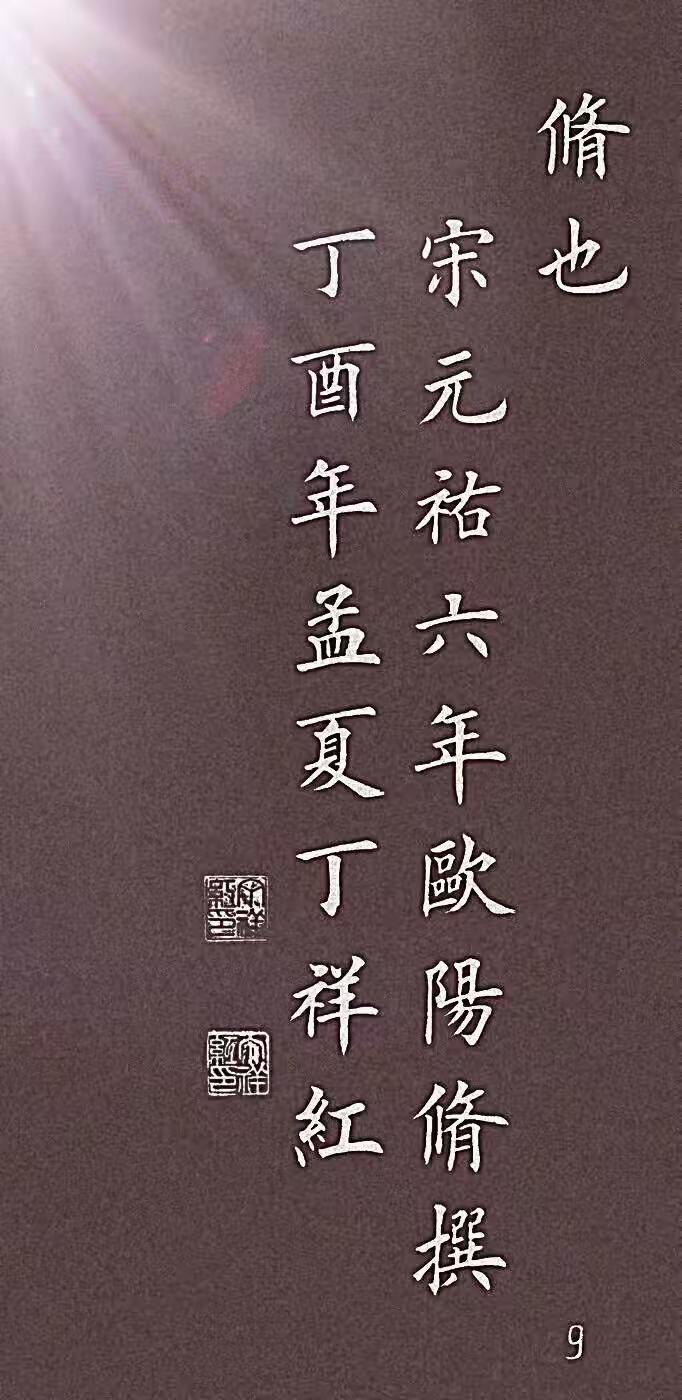 脩也
宋元祐六年歐陽脩撰
丁酉年孟夏丁祥紅
9